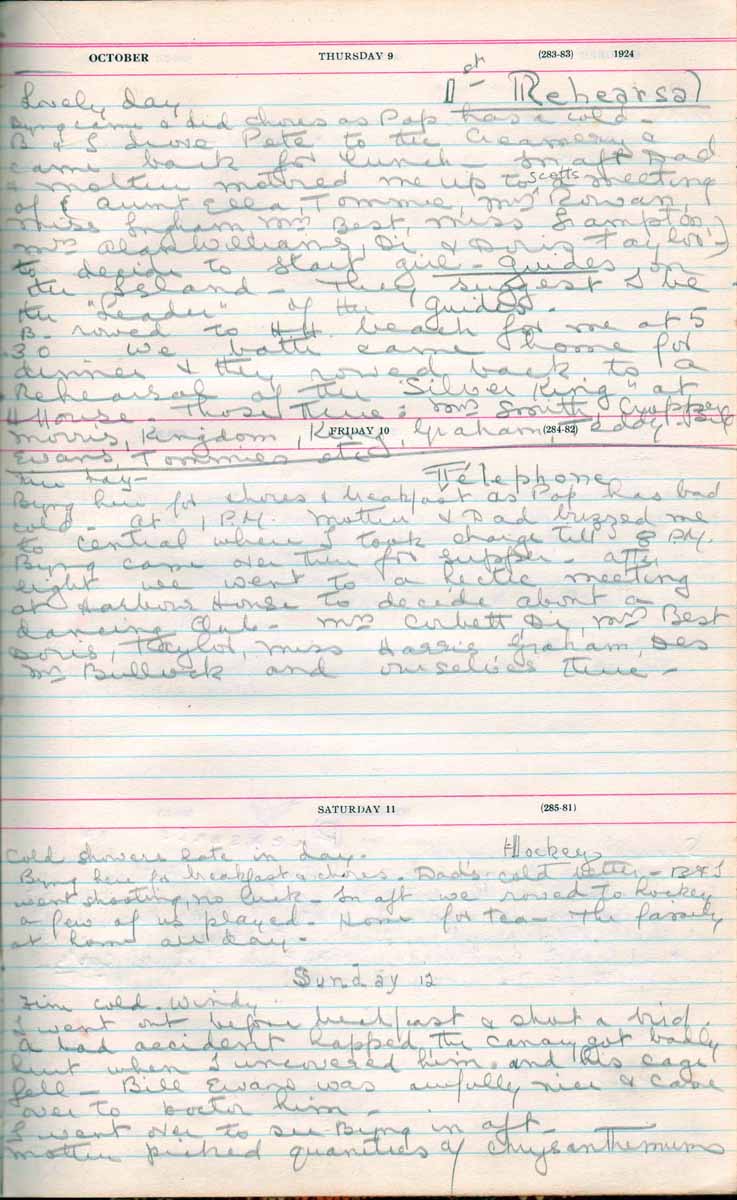 OCTOBER THURSDAY 9 (283-83) 1924
1st Rehearsal
Lovely day
Byng came & did chores as Pap has a cold -
B & I drove Pete to the Creamery &
came back for lunch - In aft Dad
& mother motored me up to Scotts a meeting
of ( Aunt Ella, Tommie, Mrs Rowan,
Miss Ingham, Mrs Best, Miss Frampton,
Mrs Alan Williams, Di & Doris Taylor )
to decide to start girl-guides on
the Island - They suggest I be
the "Leader" of the "guides" -
B. rowed to H.H. beach for me at 5
.30 We both came home for
dinner & then rowed back to a
Rehearsal of the "Silver King" at
H House. Those there: Mrs Smith, Cropper
Morris, Kingdom, King, Graham, Bill
FRIDAY 10 (284-82)
Evans, Tommies etc
Fine day - Telephone
Byng here for chores & breakfast as Pop has bad
cold - At 1 P.M. Mother & Dad buzzed me
to Central where I took charge till 8 P.M.
Byng came over there for supper - after
eight we went to a hectic meeting
at Harbour House to decide about a
dancing Club - Mrs Corbett Di, Mrs Best
Doris, Taylor, Miss Harris Graham, Des
Mr Bullock and ourselves there -
SATURDAY 11 (285-81)
Cold showers late in day. Hockey
Byng here for breakfast & chores. Dad's cold better - B & I
went shooting, no luck - In aft we rowed to hockey
a few of us played - Home for tea - The family
at home all day.
Sunday 12
Fine cold. Windy
I went out before breakfast & shot a bird.
A bad accident happed the canary got badly
hurt when I uncovered him and his cage
fell - Bill Evans was awfully nice & came
over to doctor him -
I went over to see Byng in aft -
Mother picked quanities of chrysanthemums